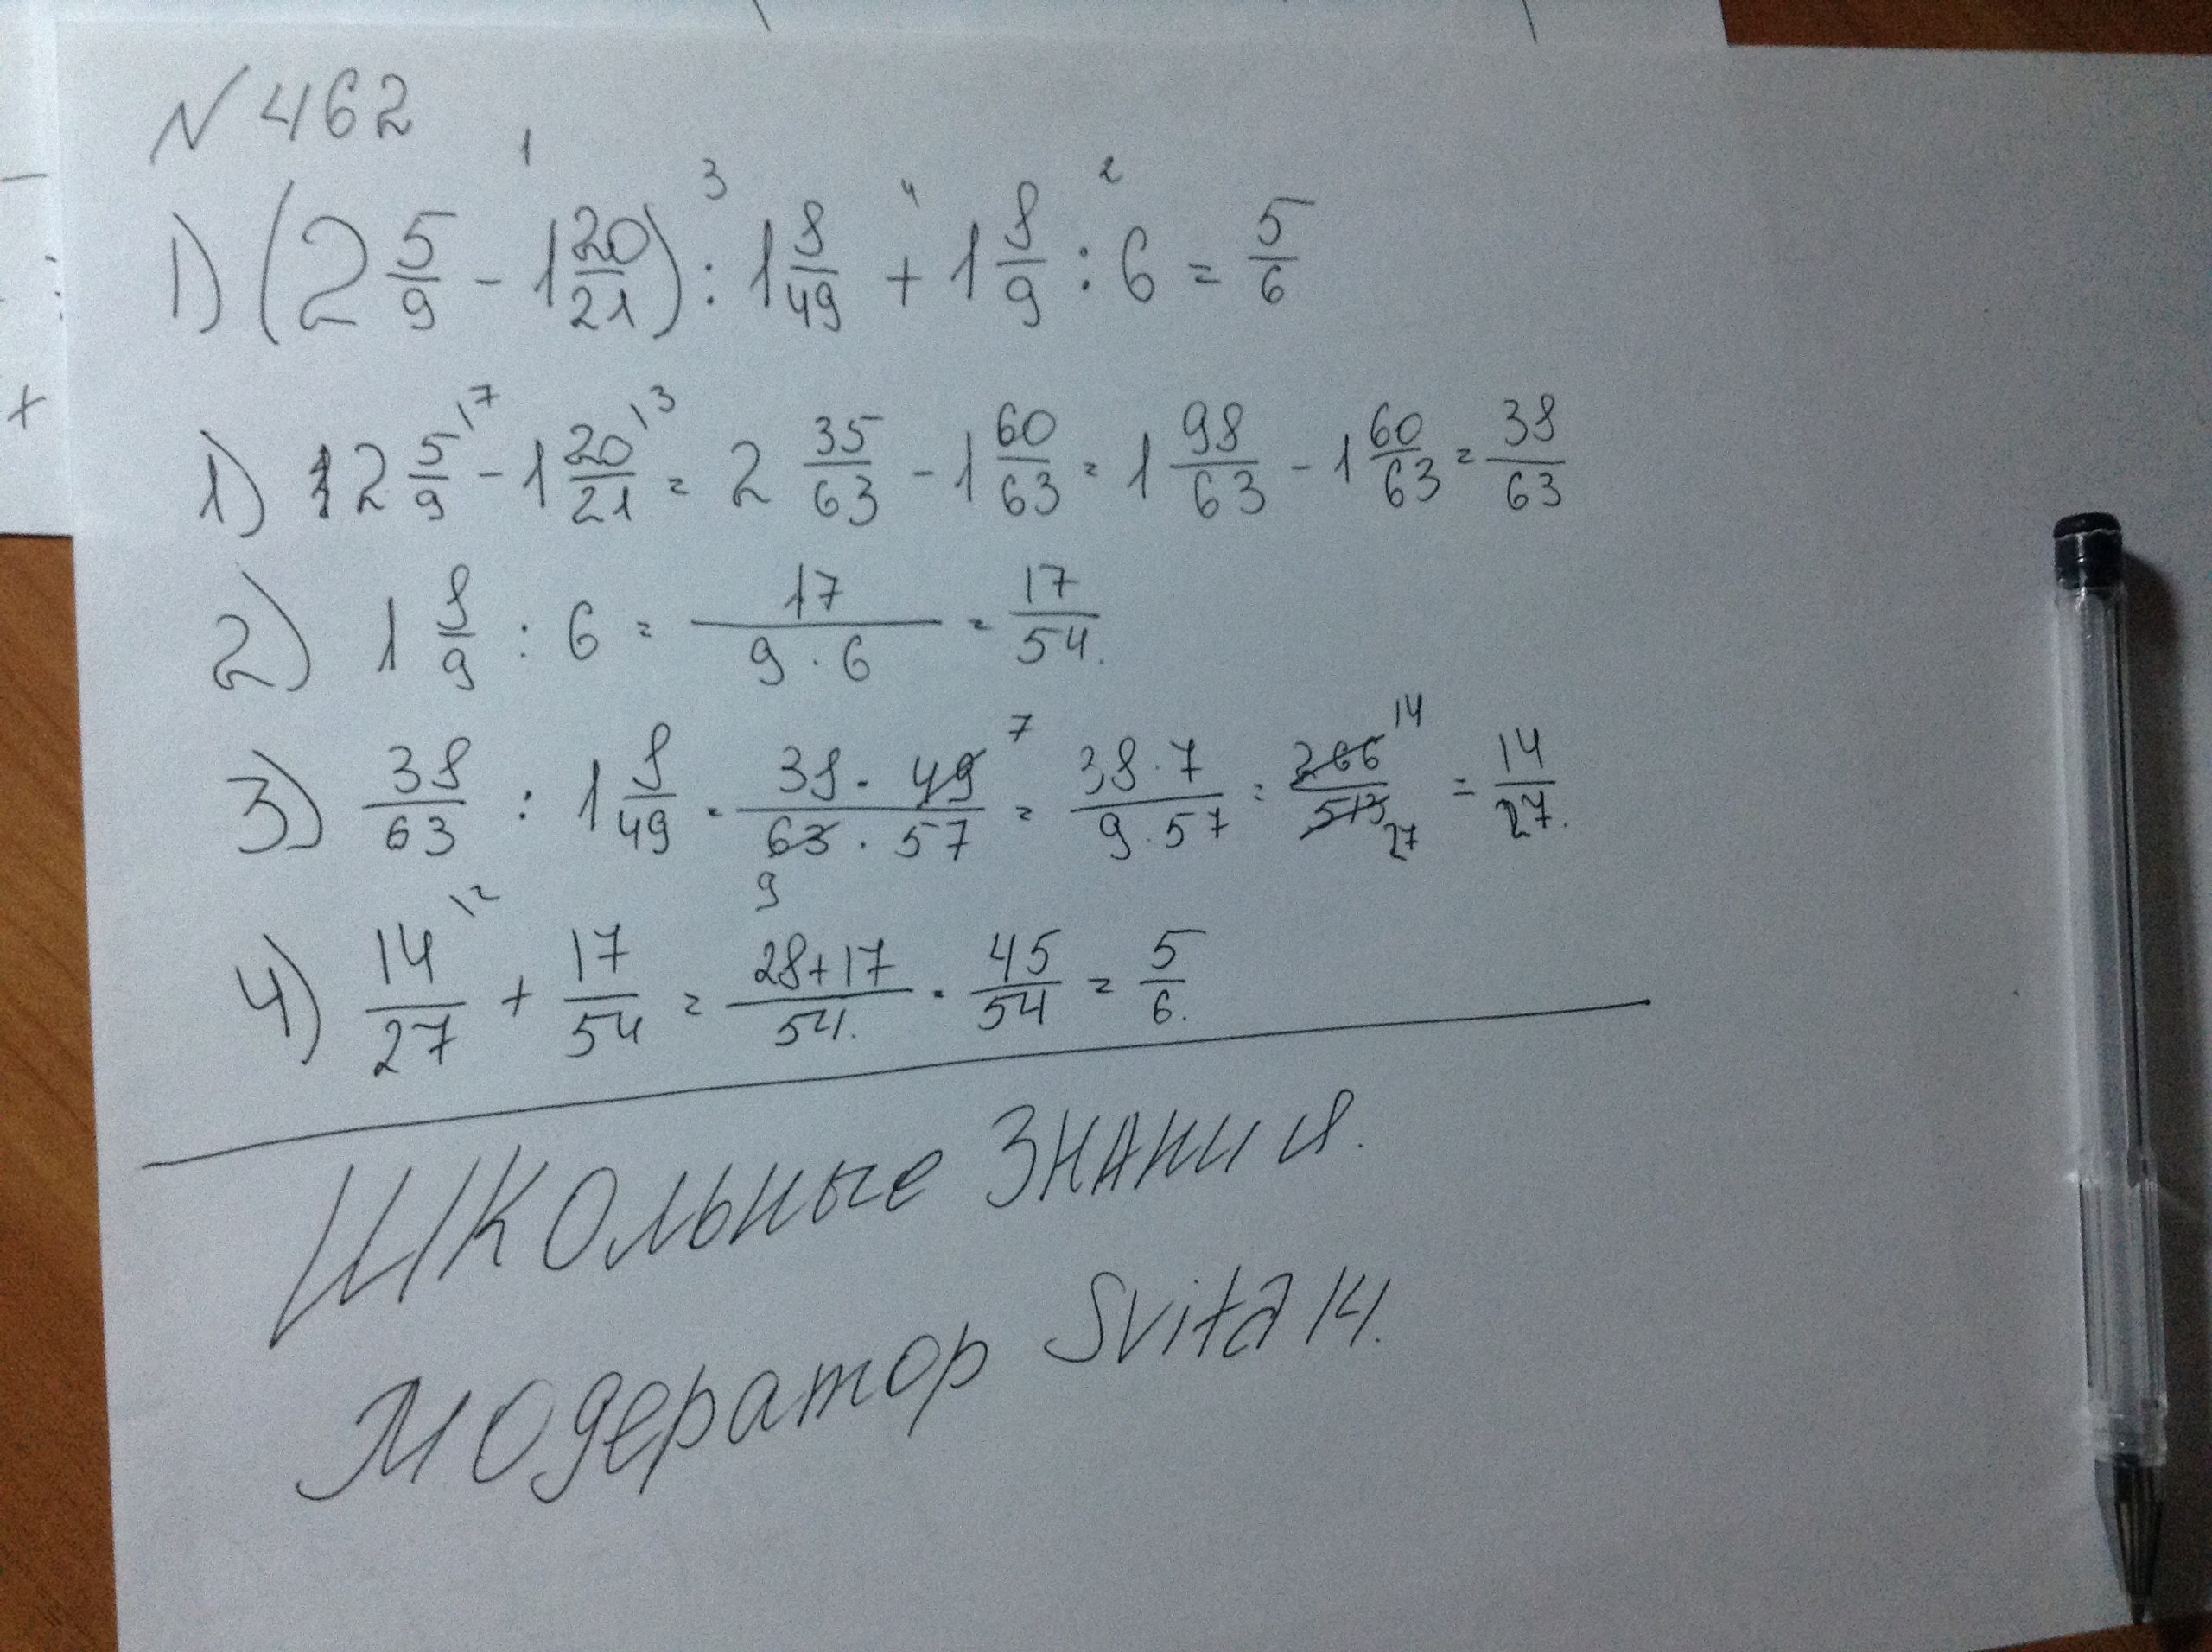 N 462
1) (2 5/9 - 1 20/21) : 1 8/49 + 1 8/9 : 6 = 5/6
1) 2 5/9 - 1 20/21 = 2 35/63 - 1 60/63 = 1 98/63 - 1 60/63 = 38/63
2) 1 8/9 : 6 = 17/(9 · 6) = 17/54.
3) 38/63 : 1 8/49 = (38 · 49)/(63 · 57) = (38 · 7)/(9 · 57) = 266/513 = 14/27.
4) 14/27 + 17/54 = (28+17)/54. = 45/54 = 5/6.
Школьные знания.
Модератор Svita14.